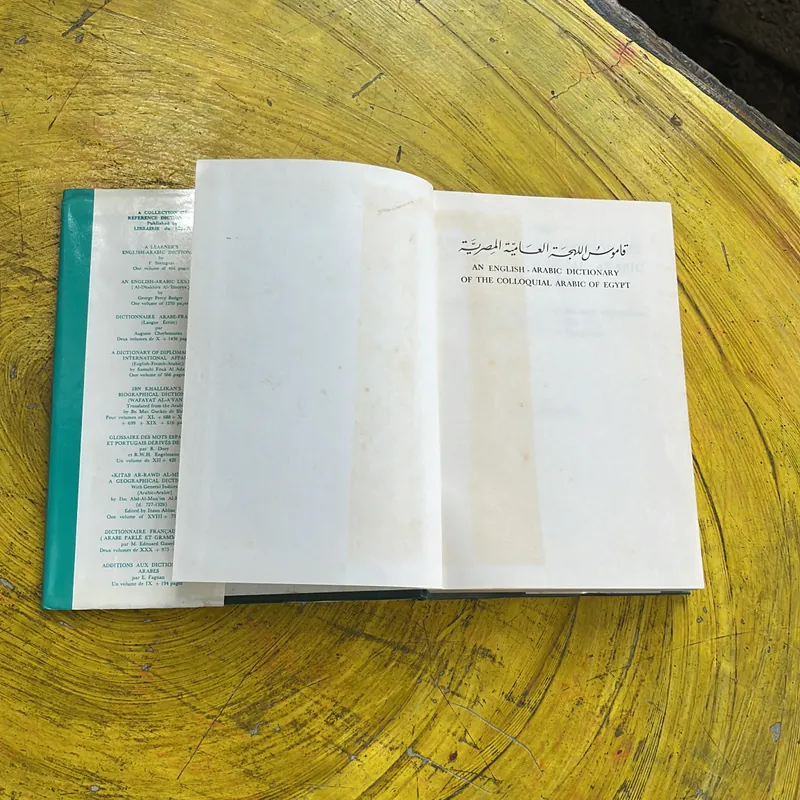 A COLLECTION OF
REFERENCE DICTION
Published by
LIBRAIRIE du
A LEARNER'S
ENGLISH-ARABIC DICTION
by
F. Steingass
One volume of 466 pages
AN ENGLISH-ARABIC LEX
(Al-Dhakhira Al-'Ilmiyya)
by
George Percy Badger
One volume of 1250 pages
DICTIONNAIRE ARABE-FRA
(Langue Écrite)
par
Auguste Cherbonneau
Deux volumes de X + 1456 pages
A DICTIONARY OF DIPLOMA
INTERNATIONAL AFFAI
(English-French-Arabic)
by Samouhi Fouk Al Ada
One volume of 566 pages
IBN KHALLIKAN'S
BIOGRAPHICAL DICTION
(WAFAYAT AL-A'YAN
Translated from the Arabic
by Bn Mac Guckin de
Four volumes of XL + 688 +
+ 699 + XIX + 616
GLOSSAIRE DES MOTS ESPA
ET PORTUGAIS DÉRIVÉS DE
par R. Dozy
et R.W.H. Engelmann
Un volume de XII + 426
«KITAB AR-RAWD AL-MI
A GEOGRAPHICAL DICTION
With General Indices
(Arabic-Arabic)
by Ibn Abd-Al-Mun'im Al
(d. 727-1326)
Edited by Ihsan Abbas
One volume of XVIII +
DICTIONNAIRE FRANÇA
(ARABE PARLÉ ET GRAMM
par M. Edouard Gasse
Deux volumes de XXX + 973
ADDITIONS AUX DICTION
ARABES
par E. Fagnan
Un volume de IX + 194 pages
قاموس اللهجة العاميّة المصريّة
AN ENGLISH - ARABIC DICTIONARY
OF THE COLLOQUIAL ARABIC OF EGYPT